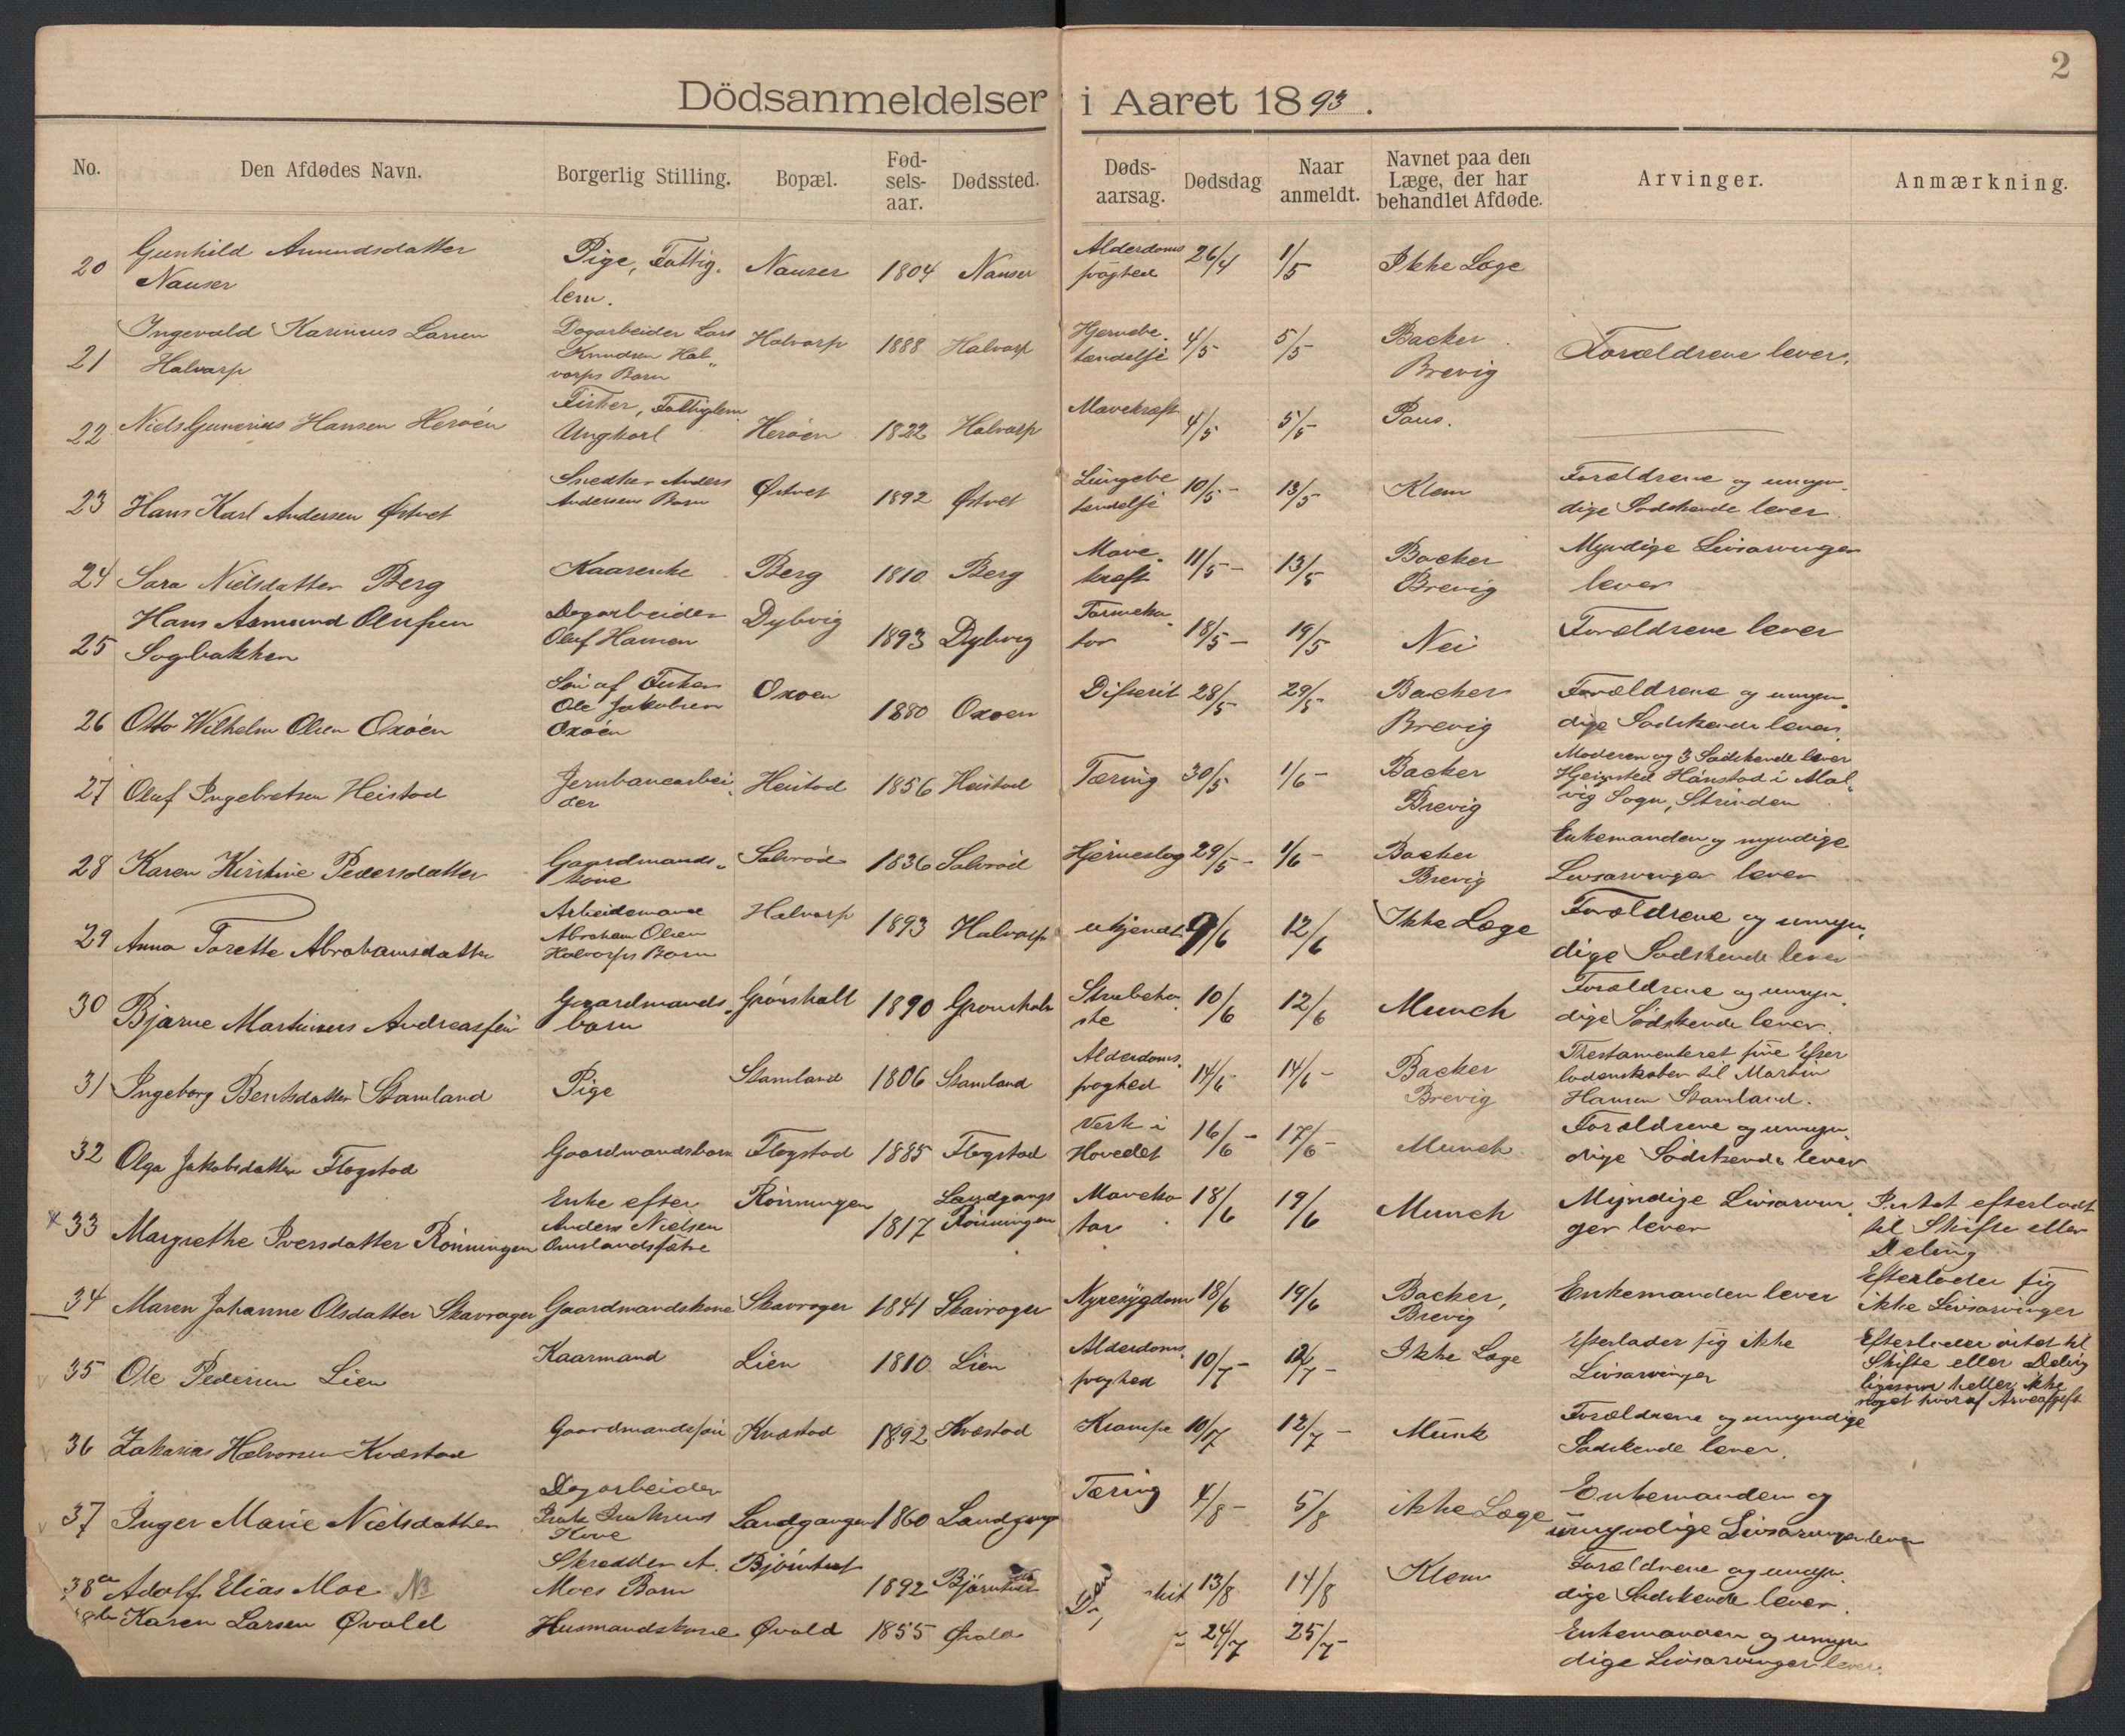 2
Dödsanmeldelser i Aaret 1893.
No. Den Afdødes Navn. Borgerlig Stilling. Bopæl. Fød-sels-aar. Dødssted. Døds-aarsag. Dødsdag Naar anmeldt. Navnet paa den Læge, der har behandlet Afdøde. Arvinger. Anmærkning.
20 Gunhild Amundsdatter Pige, Fattig- Nauser 1804 Nauser Alderdoms 26/4 1/5 Ikke Læge
Nauser lem. svaghed
21 Ingevald Karinius Larsen Dagarbeider Lars Halvarp 1888 Halvarp Hjernebe- 4/5 5/5 Backer Forældrene lever.
Halvarp Knudsen Hal- tændelse Brevig
vorps Barn
22 Niels Gunerius Hansen Herøen Fisker, Fattiglem Herøen 1822 Halvarp Mavekræft 4/5 5/5 Paus.
Ungkarl
23 Hans Karl Andersen Østvet Snedker Anders Østvet 1892 Østvet Lungebe 10/5 - 13/5 Klem Forældrene og umyn-
Andersens Barn tændelse dige Sødskende lever.
24 Sara Nielsdatter Berg Kaarenke Berg 1810 Berg Mave- 11/5 - 13/5 Backer Myndige Livsarvinger
kræft Brevig lever
25 Hans Asmund Olufsen Dagarbeider Dybvig 1893 Dybvig Tarmeka- 18/5 - 19/5 Nei Forældrene lever
Sagbakken Oluf Hansen tar
26 Otto Wilhelm Olsen Oxøen Søn af Fisker Oxøen 1880 Oxoen Difterit 28/5 29/5 Backer Forældrene og umyn-
Ole Jakobsen Brevig dige Sødskende lever.
Oxøen
27 Oluf Ingebretsen Heistad Jernbanearbei- Heistad 1856 Heistad Tæring 30/5 1/6 - Backer Moderen og 3 Sødskende lever
der Brevig Hjemsted Hånstad i Mal-
vig Sogn, Strinden
28 Karen Kirstine Pedersdatter Gaardmands- Salvrød 1836 Salvrød Hjerneslag 29/5 - 1/6 - Backer Enkemanden og myndige
kone Brevig Livsarvinger lever
29 Anna Torette Abrahamsdatter Arbeidsmand Halvarp 1893 Halvarp ukjendt 9/6 12/6 Ikke Læge Forældrene og umyn-
Abraham Olsen dige Sødskende lever
Halvorps Barn
30 Bjarne Martinius Andreassen Gaardmands- Grønshall 1890 Strubeho- 10/6 12/6 Munch Forældrene og umyn-
barn ste dige Sødskende lever.
31 Ingeborg Bentsdatter Stamland Pige Stamland 1806 Stamland Alderdoms- 14/6 14/6 - Backer Thestamenteret sine Efter
svaghed Brevig ladenskaber til Martin
Hansen Stamland.
32 Olga Jakobsdatter Flogstad Gaardmandsbarn Flogstad 1885 Flogstad Verk i 16/6 - 17/6 - Munch Forældrene og umyn-
Hovedet dige Sødskende lever
x 33 Margrethe Iversdatter Rønningen Enke efter Rønningen 1817 Landgangs Maveka 18/6 19/6 Munch Myndige Livsarvin- Intet efterladt
Anders Nielsen Rønningen tar ger lever til Skifte eller
Deling
34 Maren Johanne Olsdatter Skavrager Gaardmandskone Skavrager 1841 Skavrager Nyresygdom 18/6 19/6 Backer, Enkemanden lever Efterlader sig
Brevig ikke Livsarvinger
v 35 Ole Pedersen Lien Kaarmand Lien 1810 Lien Alderdoms- 10/7 - 12/7 - Ikke Læge Efterlader sig ikke Efterlader intet til
svaghed Livsarvinger Skifte eller Deling
ligesom heller ikke
noget hvoraf Arveafgift
v 36 Zakarias Halvorsen Kvæstad Gaardmandssøn Kvæstad 1892 Kvæstad Krampe 10/7 12/7 - Munk Forældrene og umyndige
Sødskende lever.
v 37 Inger Marie Nielsdatter Dagarbeider Landgangen 1860 Landgang Tæring 4/8 - 5/8 ikke Læge Enkemanden og
Kone umyndige Livsarvinger lever
38a Adolf Elias Moe No Skrædder A. Bjørntvet 1892 Bjørntvet 13/8 14/8 Klem Forældrene og umyn-
Moes Barn dige Sødskende lever.
8b Karen Larsen Øvald Husmandskone Øvald 1855 Øvald 24/7 25/7 - Enkemanden og umyn
dige Livsarvinger lever.